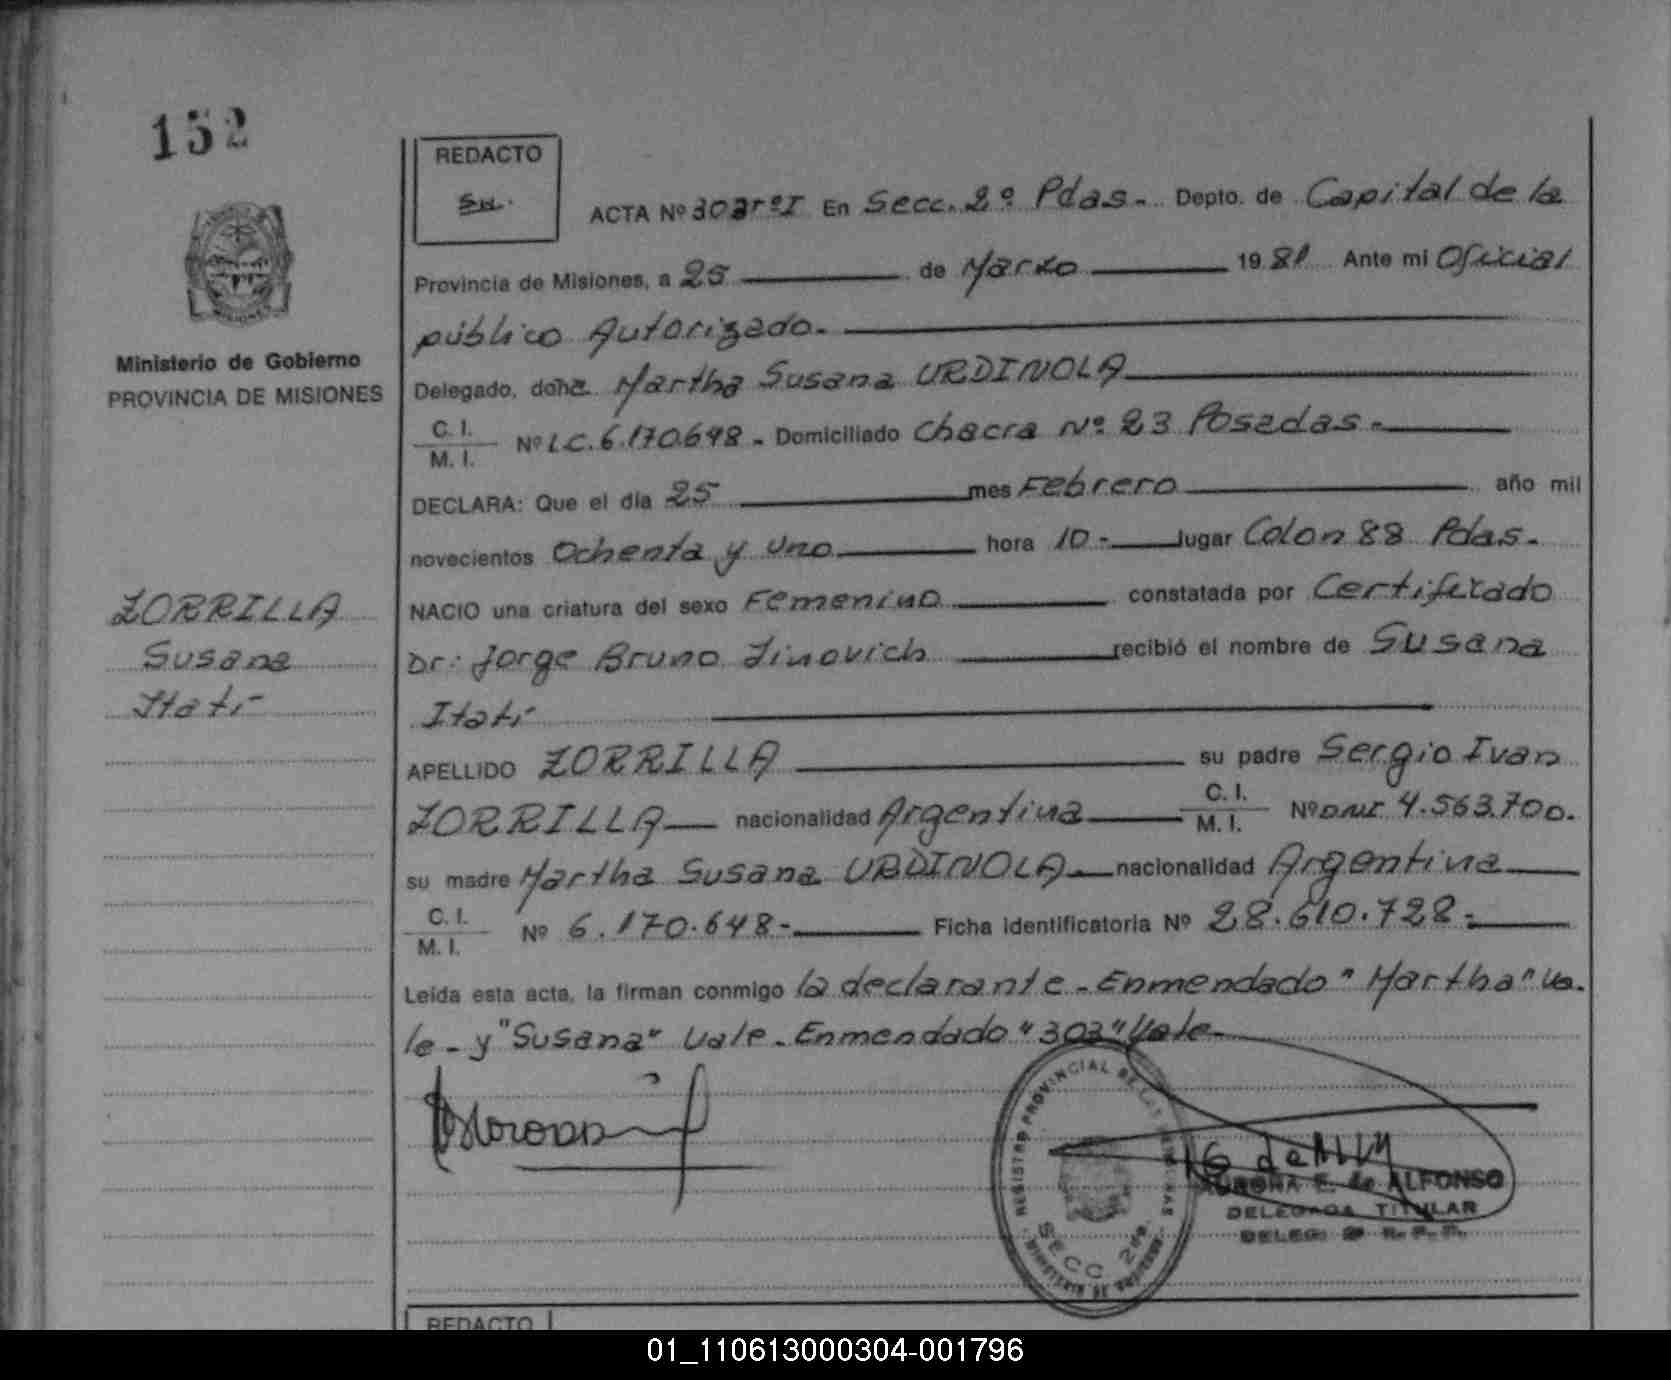 152
REDACTO
ACTA Nº 303 Tº I En Secc. 2º Pdas. Depto. de Capital de la
Provincia de Misiones, a 25 de Marzo 1981 Ante mi Oficial
público Autorizado.
Ministerio de Gobierno
PROVINCIA DE MISIONES
Delegado, doña Martha Susana URDINOLA
C. I.
M. I.
Nº LC. 6.170.648 - Domiciliado Chacra Nº 23 Posadas.-
DECLARA: Que el día 25 mes Febrero año mil
novecientos Ochenta y Uno hora 10- lugar Colon 88 Pdas.
ZORRILLA
Susana
Itatí
NACIO una criatura del sexo Femenino constatada por Certificado
Dr: Jorge Bruno recibió el nombre de Susana
Itatí
APELLIDO ZORRILLA su padre Sergio Ivan
ZORRILLA nacionalidad Argentina C. I. M. I. Nº DNI 4.563.700.
su madre Martha Susana URDINOLA nacionalidad Argentina
C. I.
M. I.
Nº 6.170.648- Ficha identificatoria Nº 28.610.728-
Leída esta acta, la firman conmigo la declarante - Enmendado "Martha" Va.
le - y "Susana" Vale - Enmendado "303" Vale
REGISTRO PROVINCIAL DE LAS PERSONAS
SECC. 2da.
MINISTERIO DE GOBIERNO
AURORA E. de ALFONSO
DELEGADA TITULAR
DELEG. 2ª R. P. P.
REDACTO
01_110613000304-001796